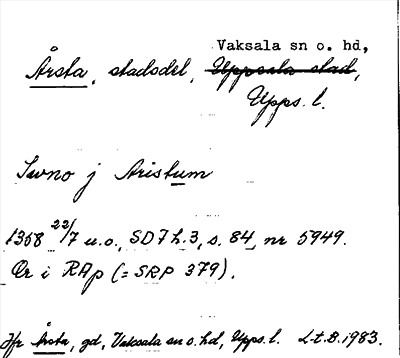 Vaksala sn o. hd,
Årsta, stadsdel, Uppsala stad,
Upps. l.
Swno j Aristum
1358 22/7 u.o., SD7 h.3, s. 84, nr 5949.
Or i RAp (= SRP 379).
Jfr Årsta, gd, Vaksala sn o. hd, Upps. l. L.t.B. 1983.